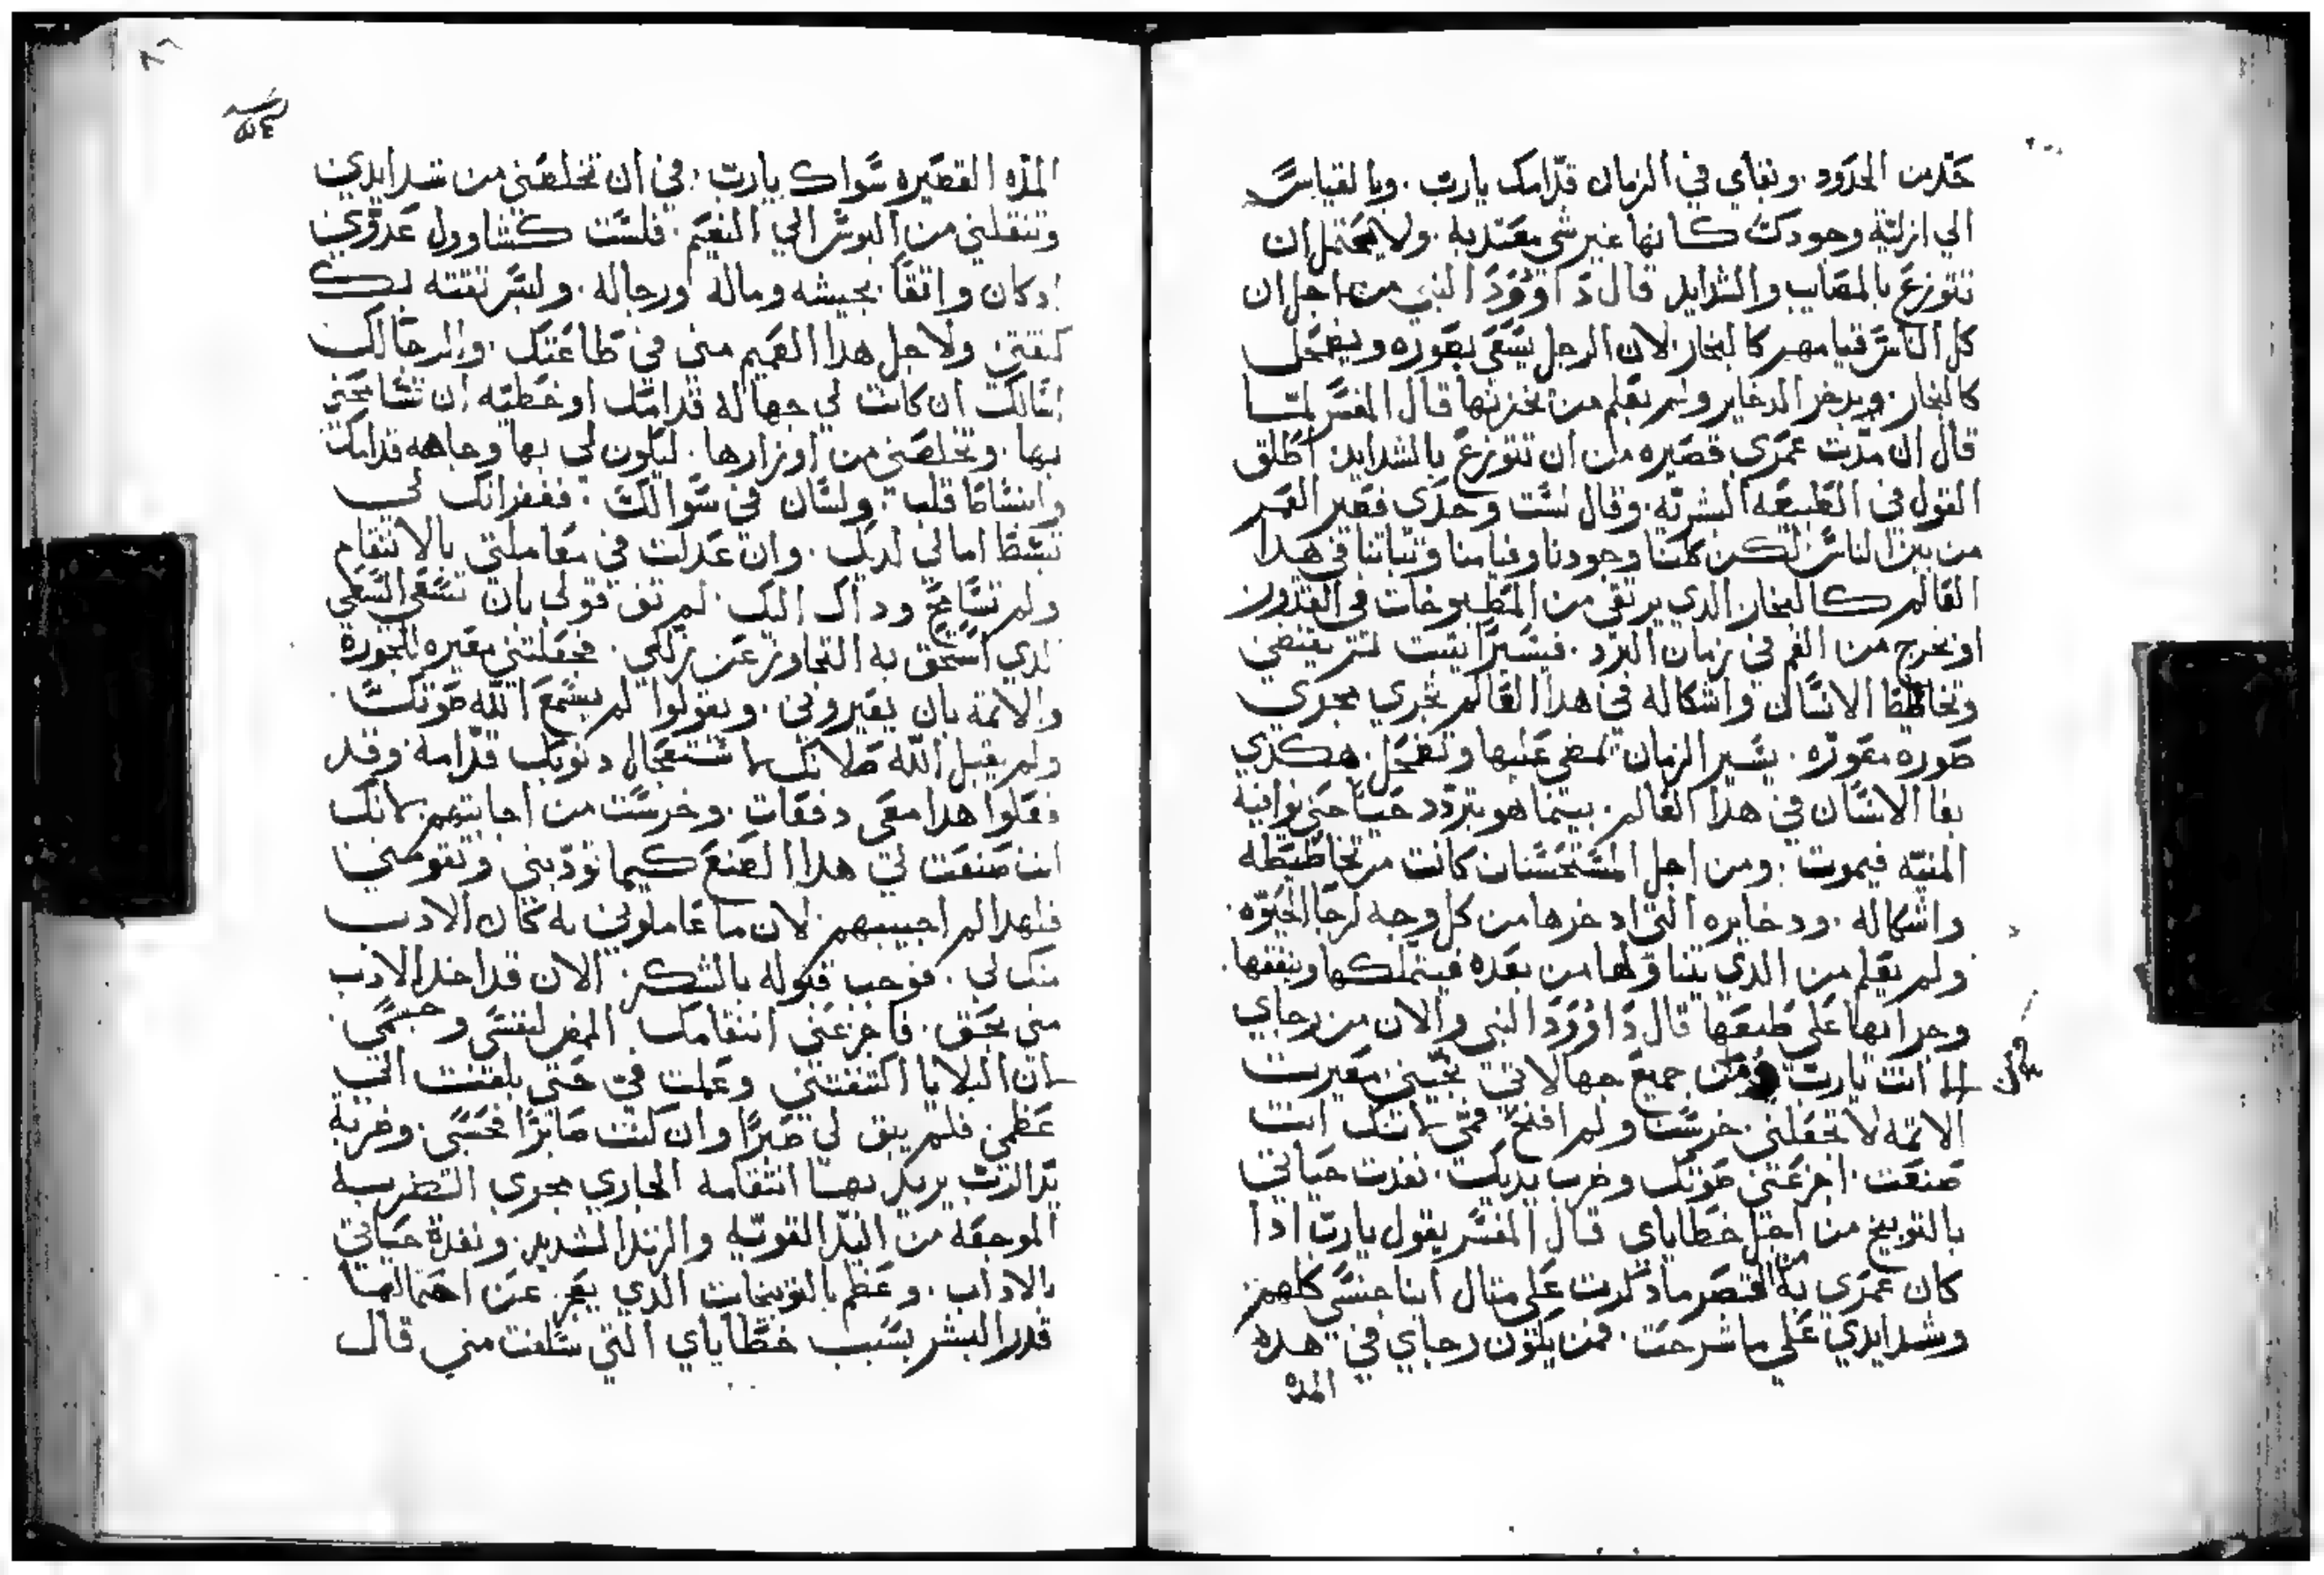 حدين الحدود. وبقاي في الزمان قدامك يارب. وبالقياس
الي ازليه وجودك كانها غير شي يعتد به. ولا يحتمل ان
تتوزع بالمصايب والشدايد قال داوود النبي من اجل ان
كل الناس قيامهم كالبخار. لان الرجل يسعى بصوره ويضمحل
كالبخار. ويدخر الدخاير ولم يعلم من يخزنها قال المفسر لما
قال ان مدت عمري قصيره من ان تتوزع بالشدايد. اطلق
القول في الطبيعه البشريه. وقال لست وحدي قصير العمر
من بين الناس لكن كلنا وجودنا وقيامنا وتباتنا في هدا
العالم كالبخار الدي يرتقي من المطبوخات في القدور
او يخرج من الفم في زمان البرد. فيسيرا يتبت تم ينقضي
وتخاطيط الانسان واشكاله في هدا العالم تجري مجري
صوره مصوره. يسير الزمان يمضي عليها وتضمحل. هكدي
بقا الانسان في هدا العالم. بينما هو يتردد حيا حتي توافيه
المنيه فيموت. ومن اجل المستحسنات كانت من تخاطيطه
واشكاله. ودخايره التي ادخرها من كل وجه لرجا الحيوه.
ولم يعلم من الدي يتناولها من بعده فيتملكها وينفقها.
وجرا بها علي طبعها قال داوود النبي والان من رجاي
الا انت يارب ومن جميع جهالاتي نجيني معيرت
الاتمه لا تجعلني. خرست ولم افتح فمي لانك انت
صنعت. اجزعتني صوتك وضرب يديك. نفدت حياتي
بالتوبيخ من اجل خطاياي قال المفسر يقول يارب ادا
كان عمري به القصر ما دكرت علي متال ابنا جنسي كلهم
وشدايدي علي ما شرحت. فمن يكون رجاي في هده
المده
المده القصيره سواك يارب. في ان تخلصني من شدايدي
وتنقلني من البوس الي النعيم. فلست كشاوول عدوي
ادكان واتقا بجيشه وماله ورجاله. وليس تقته بك
كتقتي. ولاجل هدا الصميم مني في طاعتك. والرجا لك
اسالك ان كانت لي جهاله قدامك او خطيه ان تسامحني
بها. وتخلصني من اوزارها. ليكون لي بها وجاهه قدامك
وانبساط قلب. ولسان في سوالك. فغفرانك لي
تبسط امالي لديك. وان عدلت في معاملتي بالانتقام
ولم تسامح وداك اليك. لم تق قولي بان تسعي السعي
الدي استحق به التجاوز عن زللي. فجعلتني معيره للجوره
والاتمه بان يعيروني. ويقولوا لم يسمع الله صوتك
ولم يقبل الله صلاتك لاستعجال دنوبك قدامه. وقد
فعلوا هدا معي دفعات. وخرست من اجابتهم. لانك
انت صنعت لي هدا الصنع كيما تودبني وتقومني
فلهدا لم اجيبهم. لان ما عاملوني به كان الادب
منك لي. فوجب قبوله بالشكر. الان قد اخد الادب
مني بحق. فاجزعني انتقامك. الممض لنفسي وجسمي.
لان البلايا اكتنفتني وعملت في حتي بلغت الي
عظمي. فلم يبق لي صبرا وان كنت صابرا فحسبي. وضربه
يد الرب يريد بها انتقامه الجاري مجري الضربه
الموجعه من اليد القويه والزند الشديد. ونفدة حياتي
بالاداب. وعظم بالتوبيخات الدي يعجز عن احتمالها
قدر البشر بسبب خطاياي التي سلفت مني قال